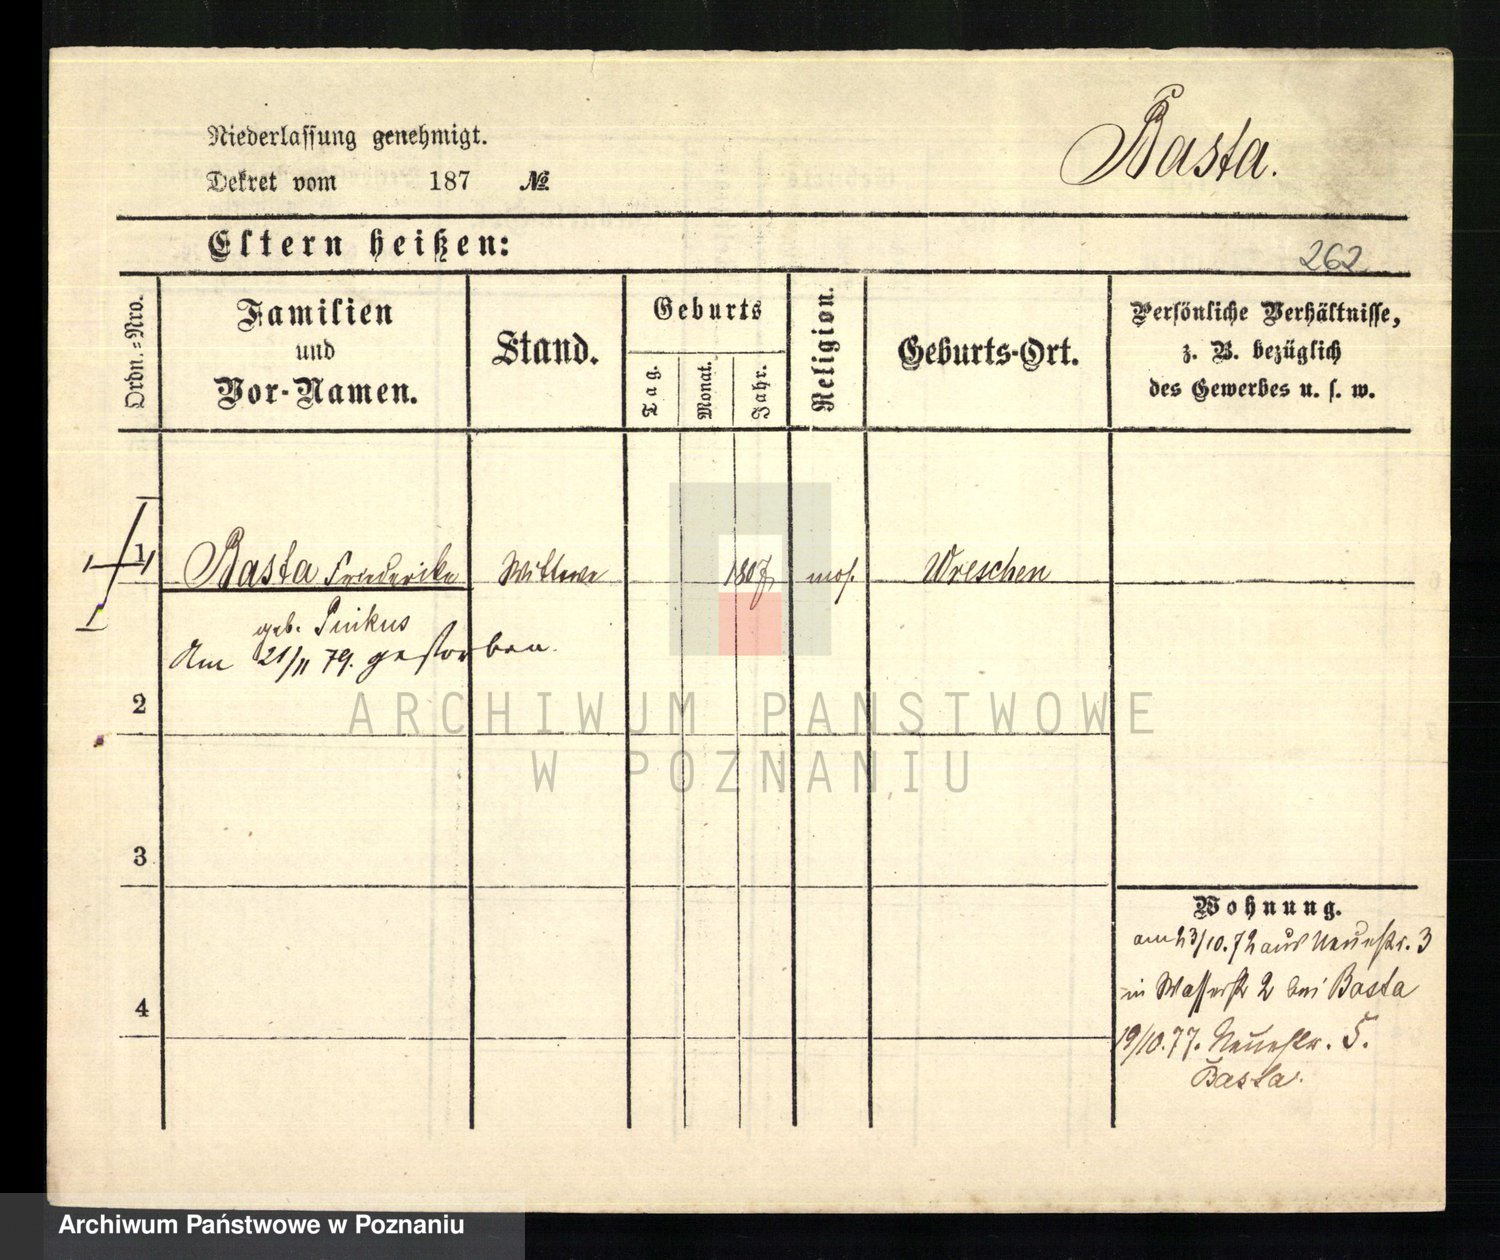 Niederlassung genehmigt.
Basta.
Dekret vom 187 №
Eltern heißen:
262
Ordn.=Nro.
Familien
und
Vor-Namen.
Stand.
Geburts
Tag.
Monat.
Jahr.
Religion.
Geburts-Ort.
Persönliche Verhältnisse,
z. B. bezüglich
des Gewerbes u. s. w.
1 Basta Friederike Wittwe 1807 mos. Wreschen
geb. Pinkus
Am 21/11 79. gestorben.
2
ARCHIWUM PANSTWOWE
W POZNANIU
3
Wohnung.
am 23/10.72 aus Neuestr. 3
in Wasserstr 2 bei Basta
4
19/10.77. Neuestr. 5.
Basta.
Archiwum Państwowe w Poznaniu